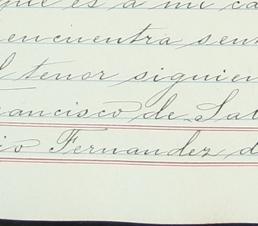 que es a mi ca
encuentra sent
l tenor siguien
rancisco de Sal
io Fernandez d